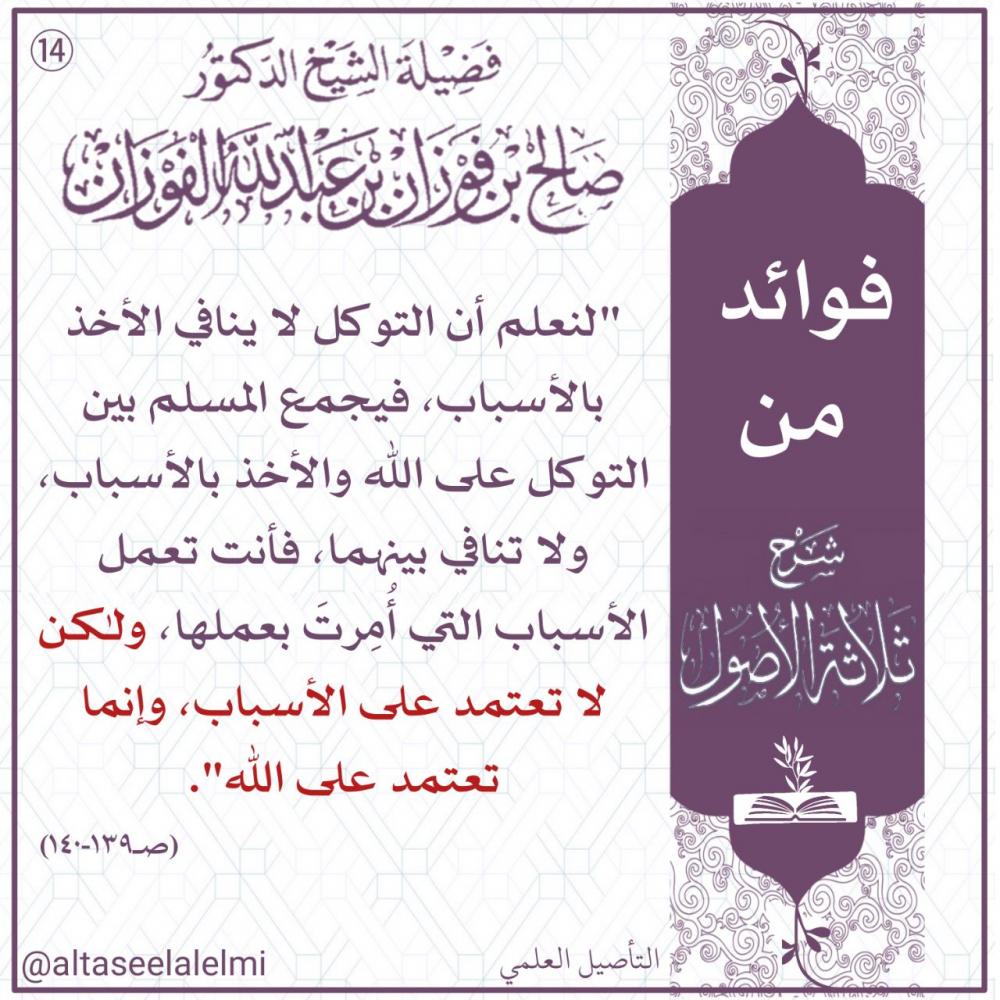 14
فضيلة الشيخ الدكتور
صالح بن فوزان بن عبد الله الفوزان
فوائد
من
شرح
ثلاثة الأصول
"لنعلم أن التوكل لا ينافي الأخذ
بالأسباب، فيجمع المسلم بين
التوكل على الله والأخذ بالأسباب،
ولا تنافي بينهما، فأنت تعمل
الأسباب التي أُمِرتَ بعملها، ولٰكن
لا تعتمد على الأسباب، وإنما
تعتمد على الله".
(صـ١٣٩-١٤٠)
التأصيل العلمي
@altaseelalelmi